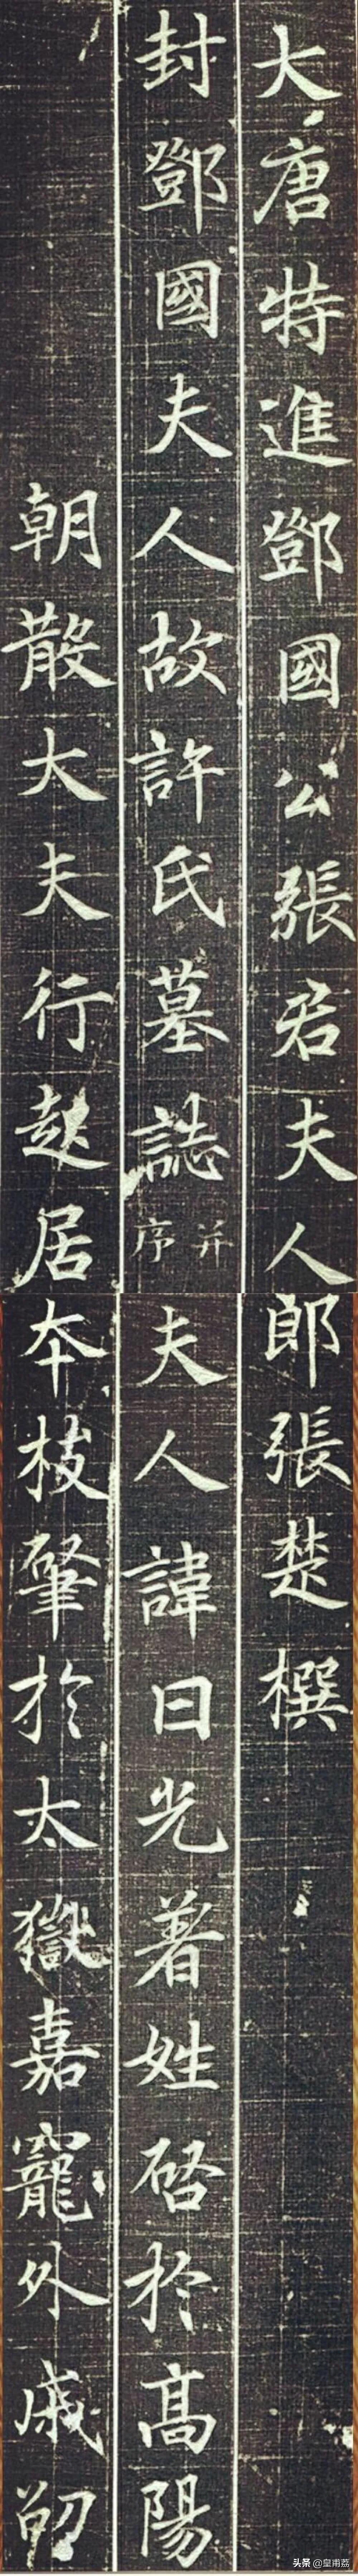 大唐特進鄧國公張君夫人
封鄧國夫人故許氏墓誌并序
朝散大夫行起居
郎張楚撰
夫人諱日光著姓啓於高陽
本枝肇於太嶽嘉寵外戚
头条 @皇甫荔